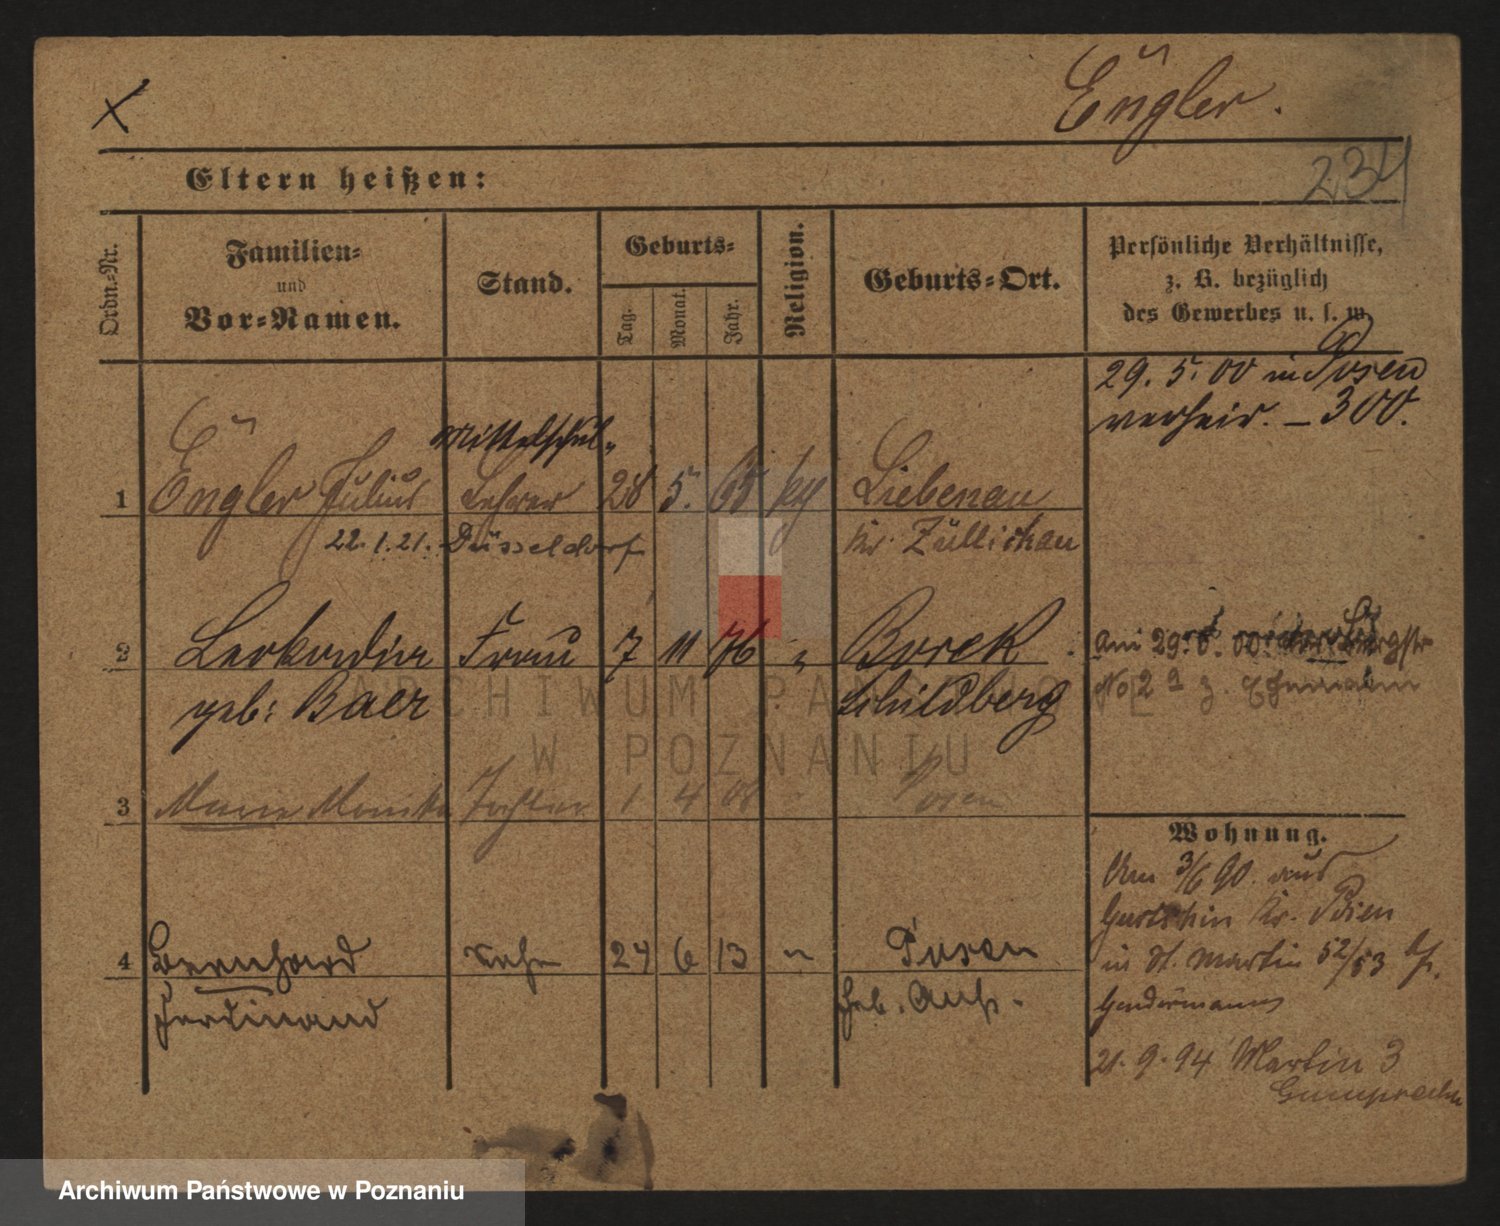 Engler.
234
Eltern heißen:
Ordn.-Nr.
Familien-
und
Vor-Namen.
Stand.
Geburts-
Tag.
Monat.
Jahr.
Religion.
Geburts-Ort.
Persönliche Verhältnisse,
z. B. bezüglich
des Gewerbes u. s. w.
29. 5. 00 in Posen
verheir. – 300.
Mittelschul-
1 Engler Julius Lehrer 28 5. 65 Liebenau
22.1.21. Düsseldorf Kr. Züllichau
2 Leokadia Frau 7 11 76 " Borek
geb: Baer Schildberg
Am 29. 00
No 2
3 Marie Monika Tochter 1 4 08 Posen
Wohnung.
Am 3/6 90. aus
Kr. Posen
4 Bernhard 24 6 13 " Posen
in St. Martin 52/53
Ferdinand
21. 9. 94 Martin 3
ARCHIWUM PAŃSTWOWE
W POZNANIU
Archiwum Państwowe w Poznaniu